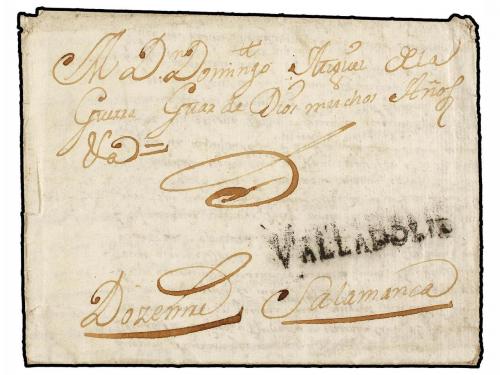 A Dn Domingo Miguel de la
Guerra Guar de Dios muchos Años
VALLADOLID
Dozenni Salamanca